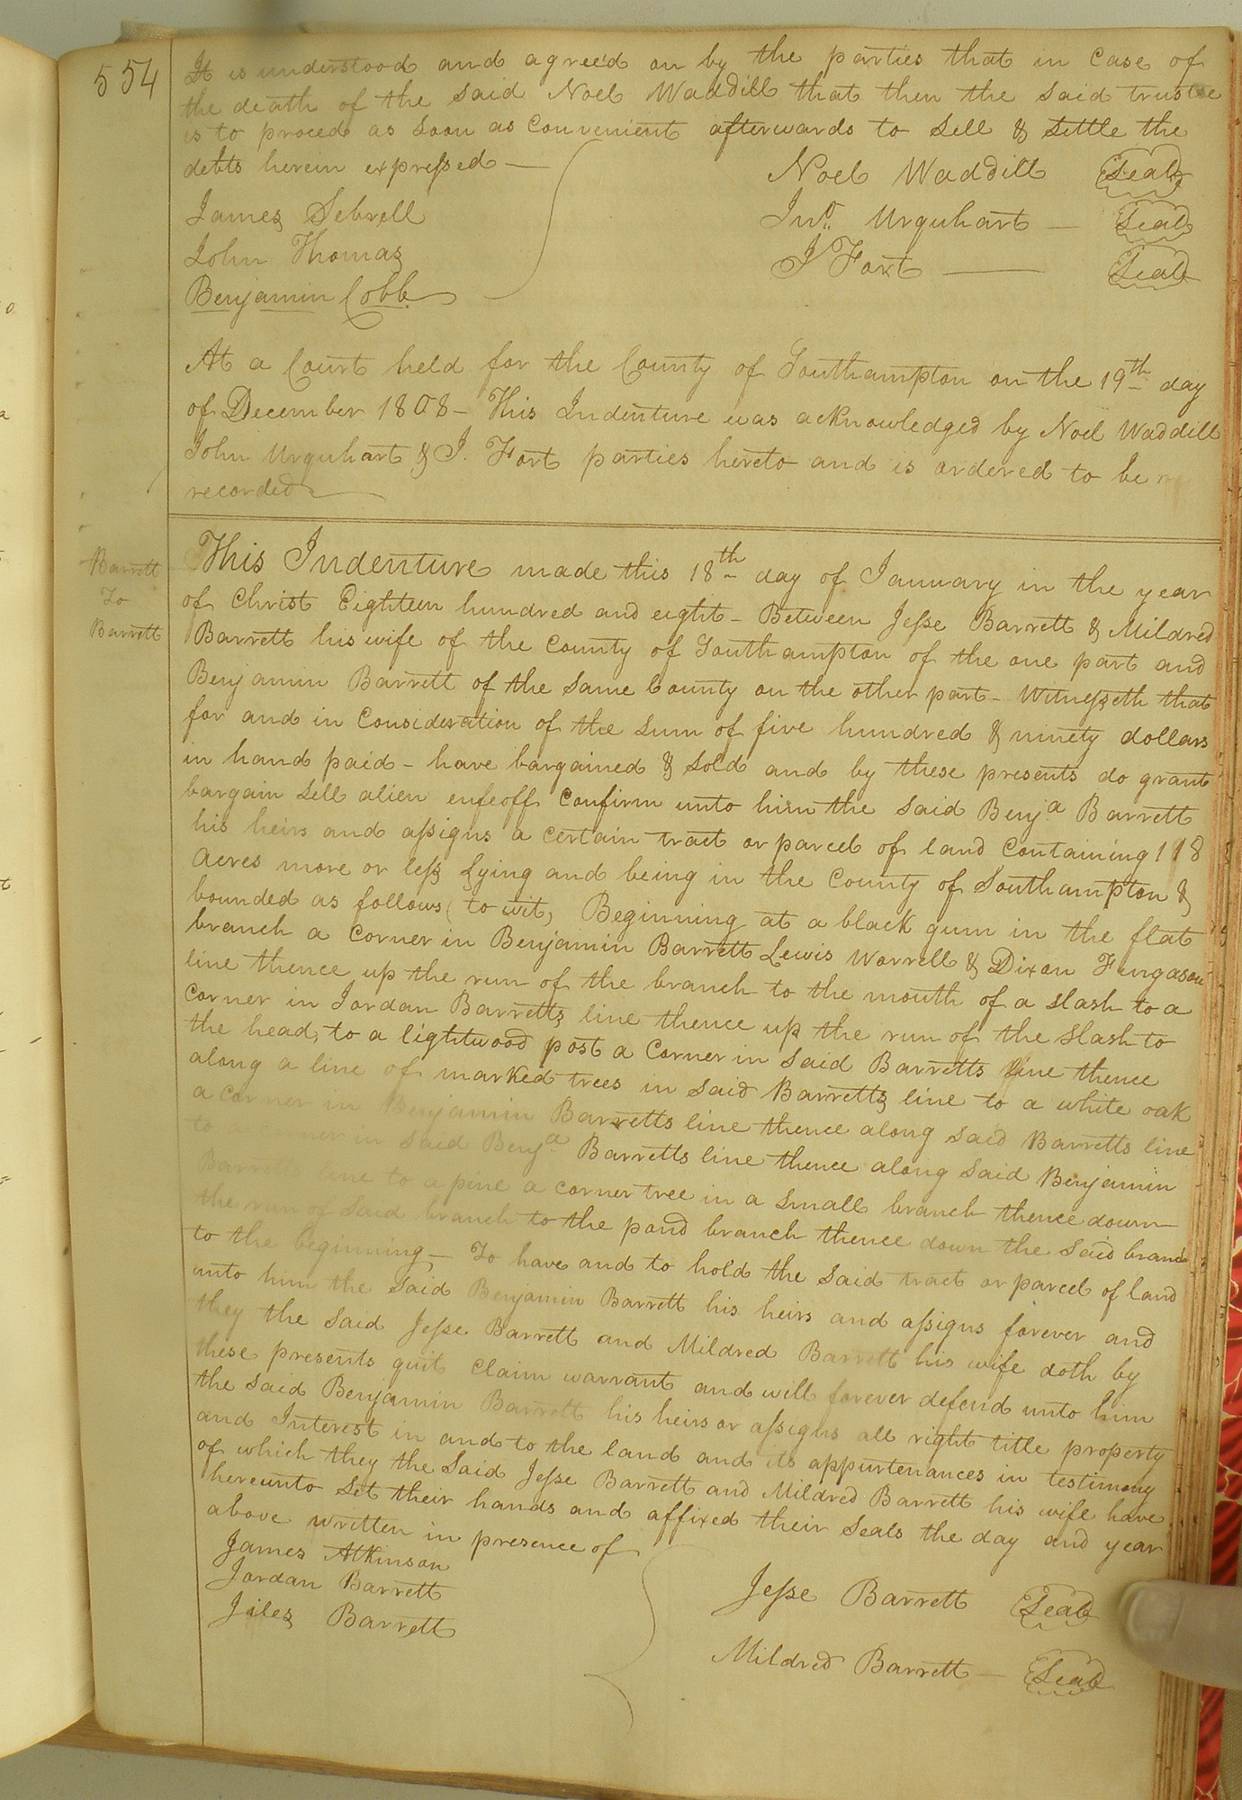 554
It is understood and agreed on by the parties that in case of
the death of the said Noel Waddill that then the said trustee
is to proced as soon as convenient afterwards to sell & settle the
debts herein expressed —
Noel Waddill Seal
James Sebrell
Jno. Urquhart — Seal
John Thomas
J Fort — Seal
Benjamin Cobb
At a Court held for the County of Southampton on the 19th day
of December 1808 - This Indenture was acknowledged by Noel Waddill
John Urquhart & J. Fort parties hereto and is ordered to be
recorded
Barrett
To
Barrett
This Indenture made this 18th day of January in the year
of Christ Eighteen hundred and eight - Between Jesse Barrett & Mildred
Barrett his wife of the County of Southampton of the one part and
Benjamin Barrett of the same County on the other part - Witnesseth that
for and in Consideration of the sum of five hundred & ninety dollars
in hand paid - have bargained & sold and by these presents do grant
bargain sell alien enfeoff confirm unto him the said Benja Barrett
his heirs and assigns a certain tract or parcel of land containing 118
acres more or less Lying and being in the County of Southampton &
bounded as follows (to wit, Beginning at a black gum in the flat
branch a corner in Benjamin Barrett Lewis Worrell & Dixon Furgason
line thence up the run of the branch to the mouth of a slash to a
corner in Jordan Barretts line thence up the run of the slash to
the head, to a lightwood post a corner in said Barretts line thence
along a line of marked trees in said Barretts line to a white oak
a corner in Benjamin Barretts line thence along said Barretts line
to corner in said Benja Barretts line thence along said Benjamin
Barretts line to a pine a corner tree in a small branch thence down
the run of said branch to the pond branch thence down the said branch
to the beginning, — To have and to hold the said tract or parcel of land
unto him the said Benjamin Barrett his heirs and assigns forever and
they the said Jesse Barrett and Mildred Barrett his wife doth by
these presents quit claim warrant and will forever defend unto him
the said Benjamin Barrett his heirs or assigns all right title property
and Interest in and to the land and its appurtenances in testimony
of which they the said Jesse Barrett and Mildred Barrett his wife have
hereunto set their hands and affixed their seals the day and year
above written in presence of
James Atkinson
Jordan Barrett
Jesse Barrett Seal
Jiles Barrett
Mildred Barrett — Seal